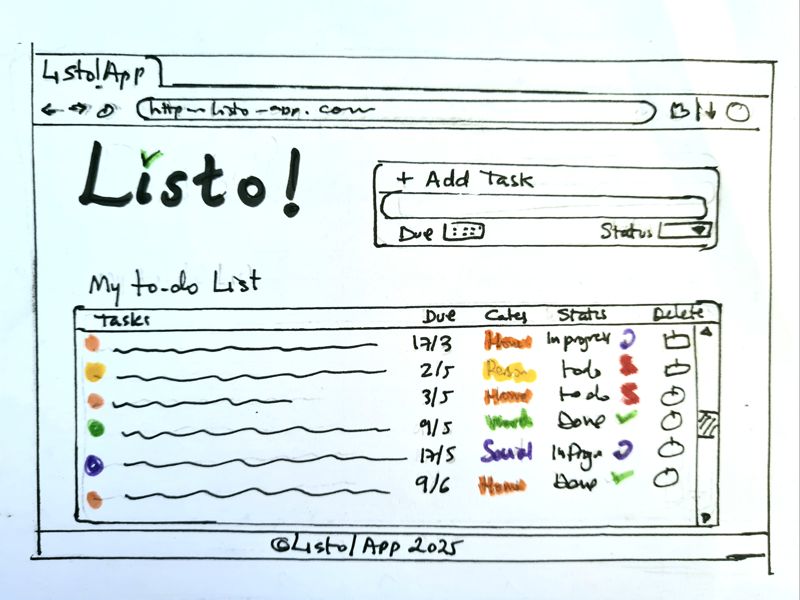 Listo!App
http—listo-app.com
Listo!
+ Add Task
Due Status
My to-do List
Tasks Due Cates Status Delete
17/3 Home In progress
2/5 todo
3/5 Home to do
9/5 Work Done
17/5 Social In Progre
9/6 Home Done
©Listo!App 2025